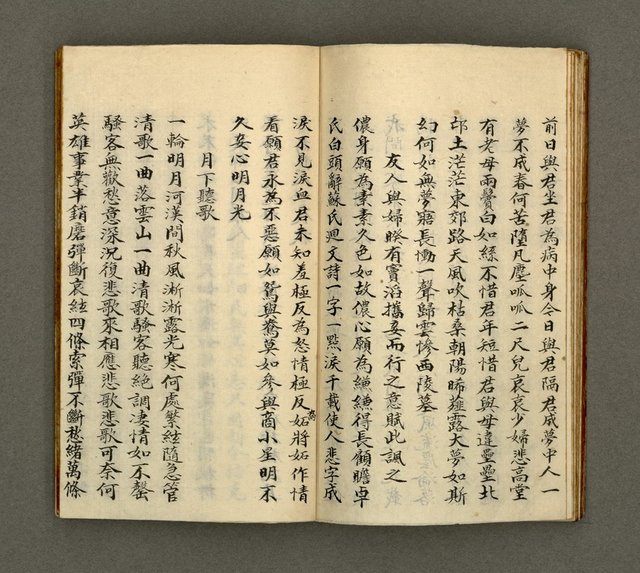 前日與君坐君為病中身今日與君隔君成夢中人一
夢不成春何苦墮凡塵呱呱二尺兒哀哀少婦悲高堂
有老母兩鬢白如絲不惜君年短惜君與母違壘壘北
邙土茫茫東郊路天風吹枯桑朝陽晞薤露大夢如斯
幻何如無夢寤長慟一聲歸雲慘西陵墓
友人與婦睽有竇滔攜妾而行之意賦此諷之
儂身願為素素久色如故儂心願為縑縑得長顧瞻卓
氏白頭辭蘇氏迴文詩一字一點淚千載使人悲字成
淚不見淚血君未知羞極反為怒情極反為妬將妬作情
看願君永為不惡願如鴛與鴦莫如參與商小星明不
久妾心明月光
月下聽歌
一輪明月河漢間秋風淅淅露光寒何處繁絃隨急管
清歌一曲落雲山一曲清歌騷客聽絕調淒情如不罄
騷客無歡愁意深況復悲歌來相應悲歌悲歌可奈何
英雄事業半銷磨彈斷哀絃四條索彈不斷愁緒萬條